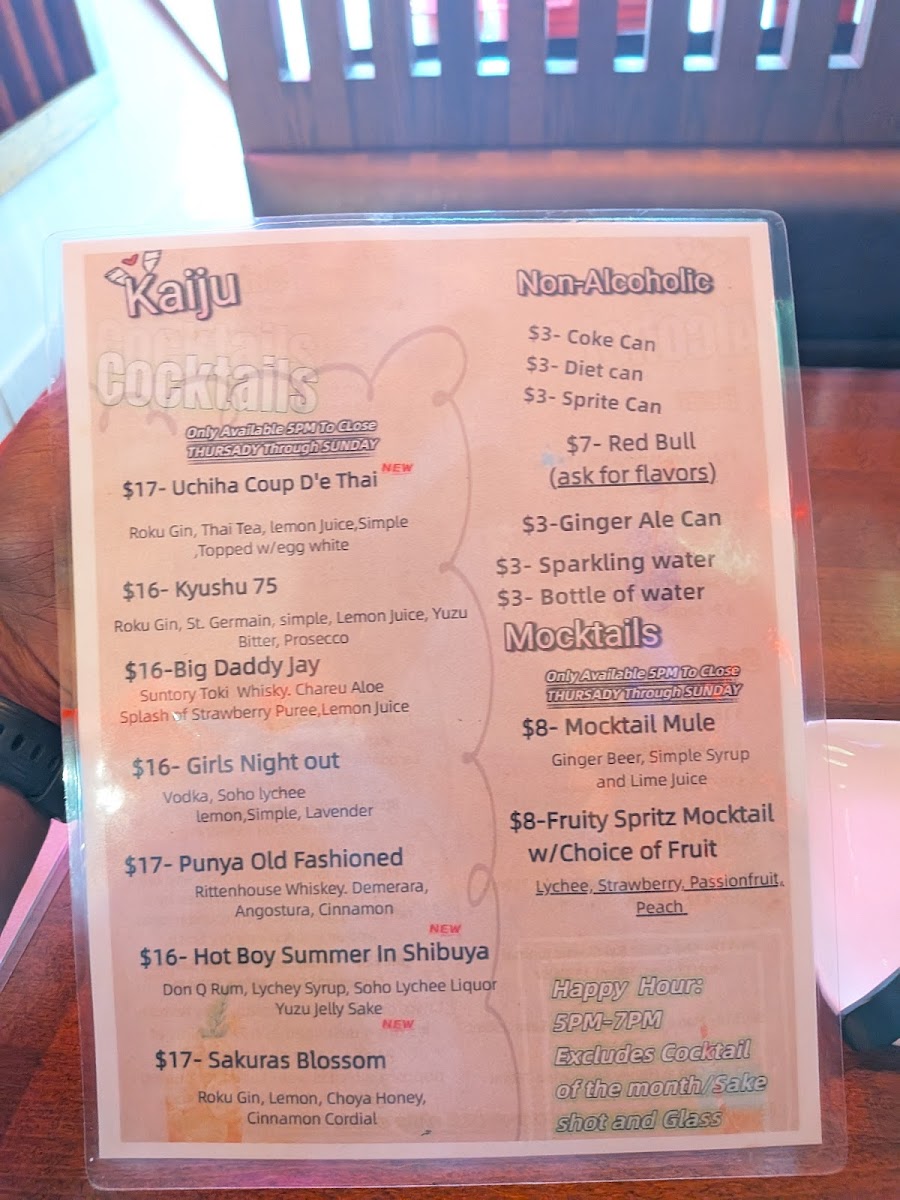 Kaiju
Cocktails
Only Available 5PM To CLose
THURSADY Through SUNDAY
NEW
$17- Uchiha Coup D'e Thai
Roku Gin, Thai Tea, lemon Juice,Simple
,Topped w/egg white
$16- Kyushu 75
Roku Gin, St. Germain, simple, Lemon Juice, Yuzu
Bitter, Prosecco
$16-Big Daddy Jay
Suntory Toki Whisky. Chareu Aloe
Splash of Strawberry Puree,Lemon Juice
$16- Girls Night out
Vodka, Soho lychee
lemon,Simple, Lavender
$17- Punya Old Fashioned
Rittenhouse Whiskey. Demerara,
Angostura, Cinnamon
NEW
$16- Hot Boy Summer In Shibuya
Don Q Rum, Lychey Syrup, Soho Lychee Liquor
Yuzu Jelly Sake
NEW
$17- Sakuras Blossom
Roku Gin, Lemon, Choya Honey,
Cinnamon Cordial
Non-Alcoholic
$3- Coke Can
$3- Diet can
$3- Sprite Can
$7- Red Bull
(ask for flavors)
$3-Ginger Ale Can
$3- Sparkling water
$3- Bottle of water
Mocktails
Only Available 5PM To CLose
THURSADY Through SUNDAY
$8- Mocktail Mule
Ginger Beer, Simple Syrup
and Lime Juice
$8-Fruity Spritz Mocktail
w/Choice of Fruit
Lychee, Strawberry, Passionfruit,
Peach
Happy Hour:
5PM-7PM
Excludes Cocktail
of the month/Sake
shot and Glass